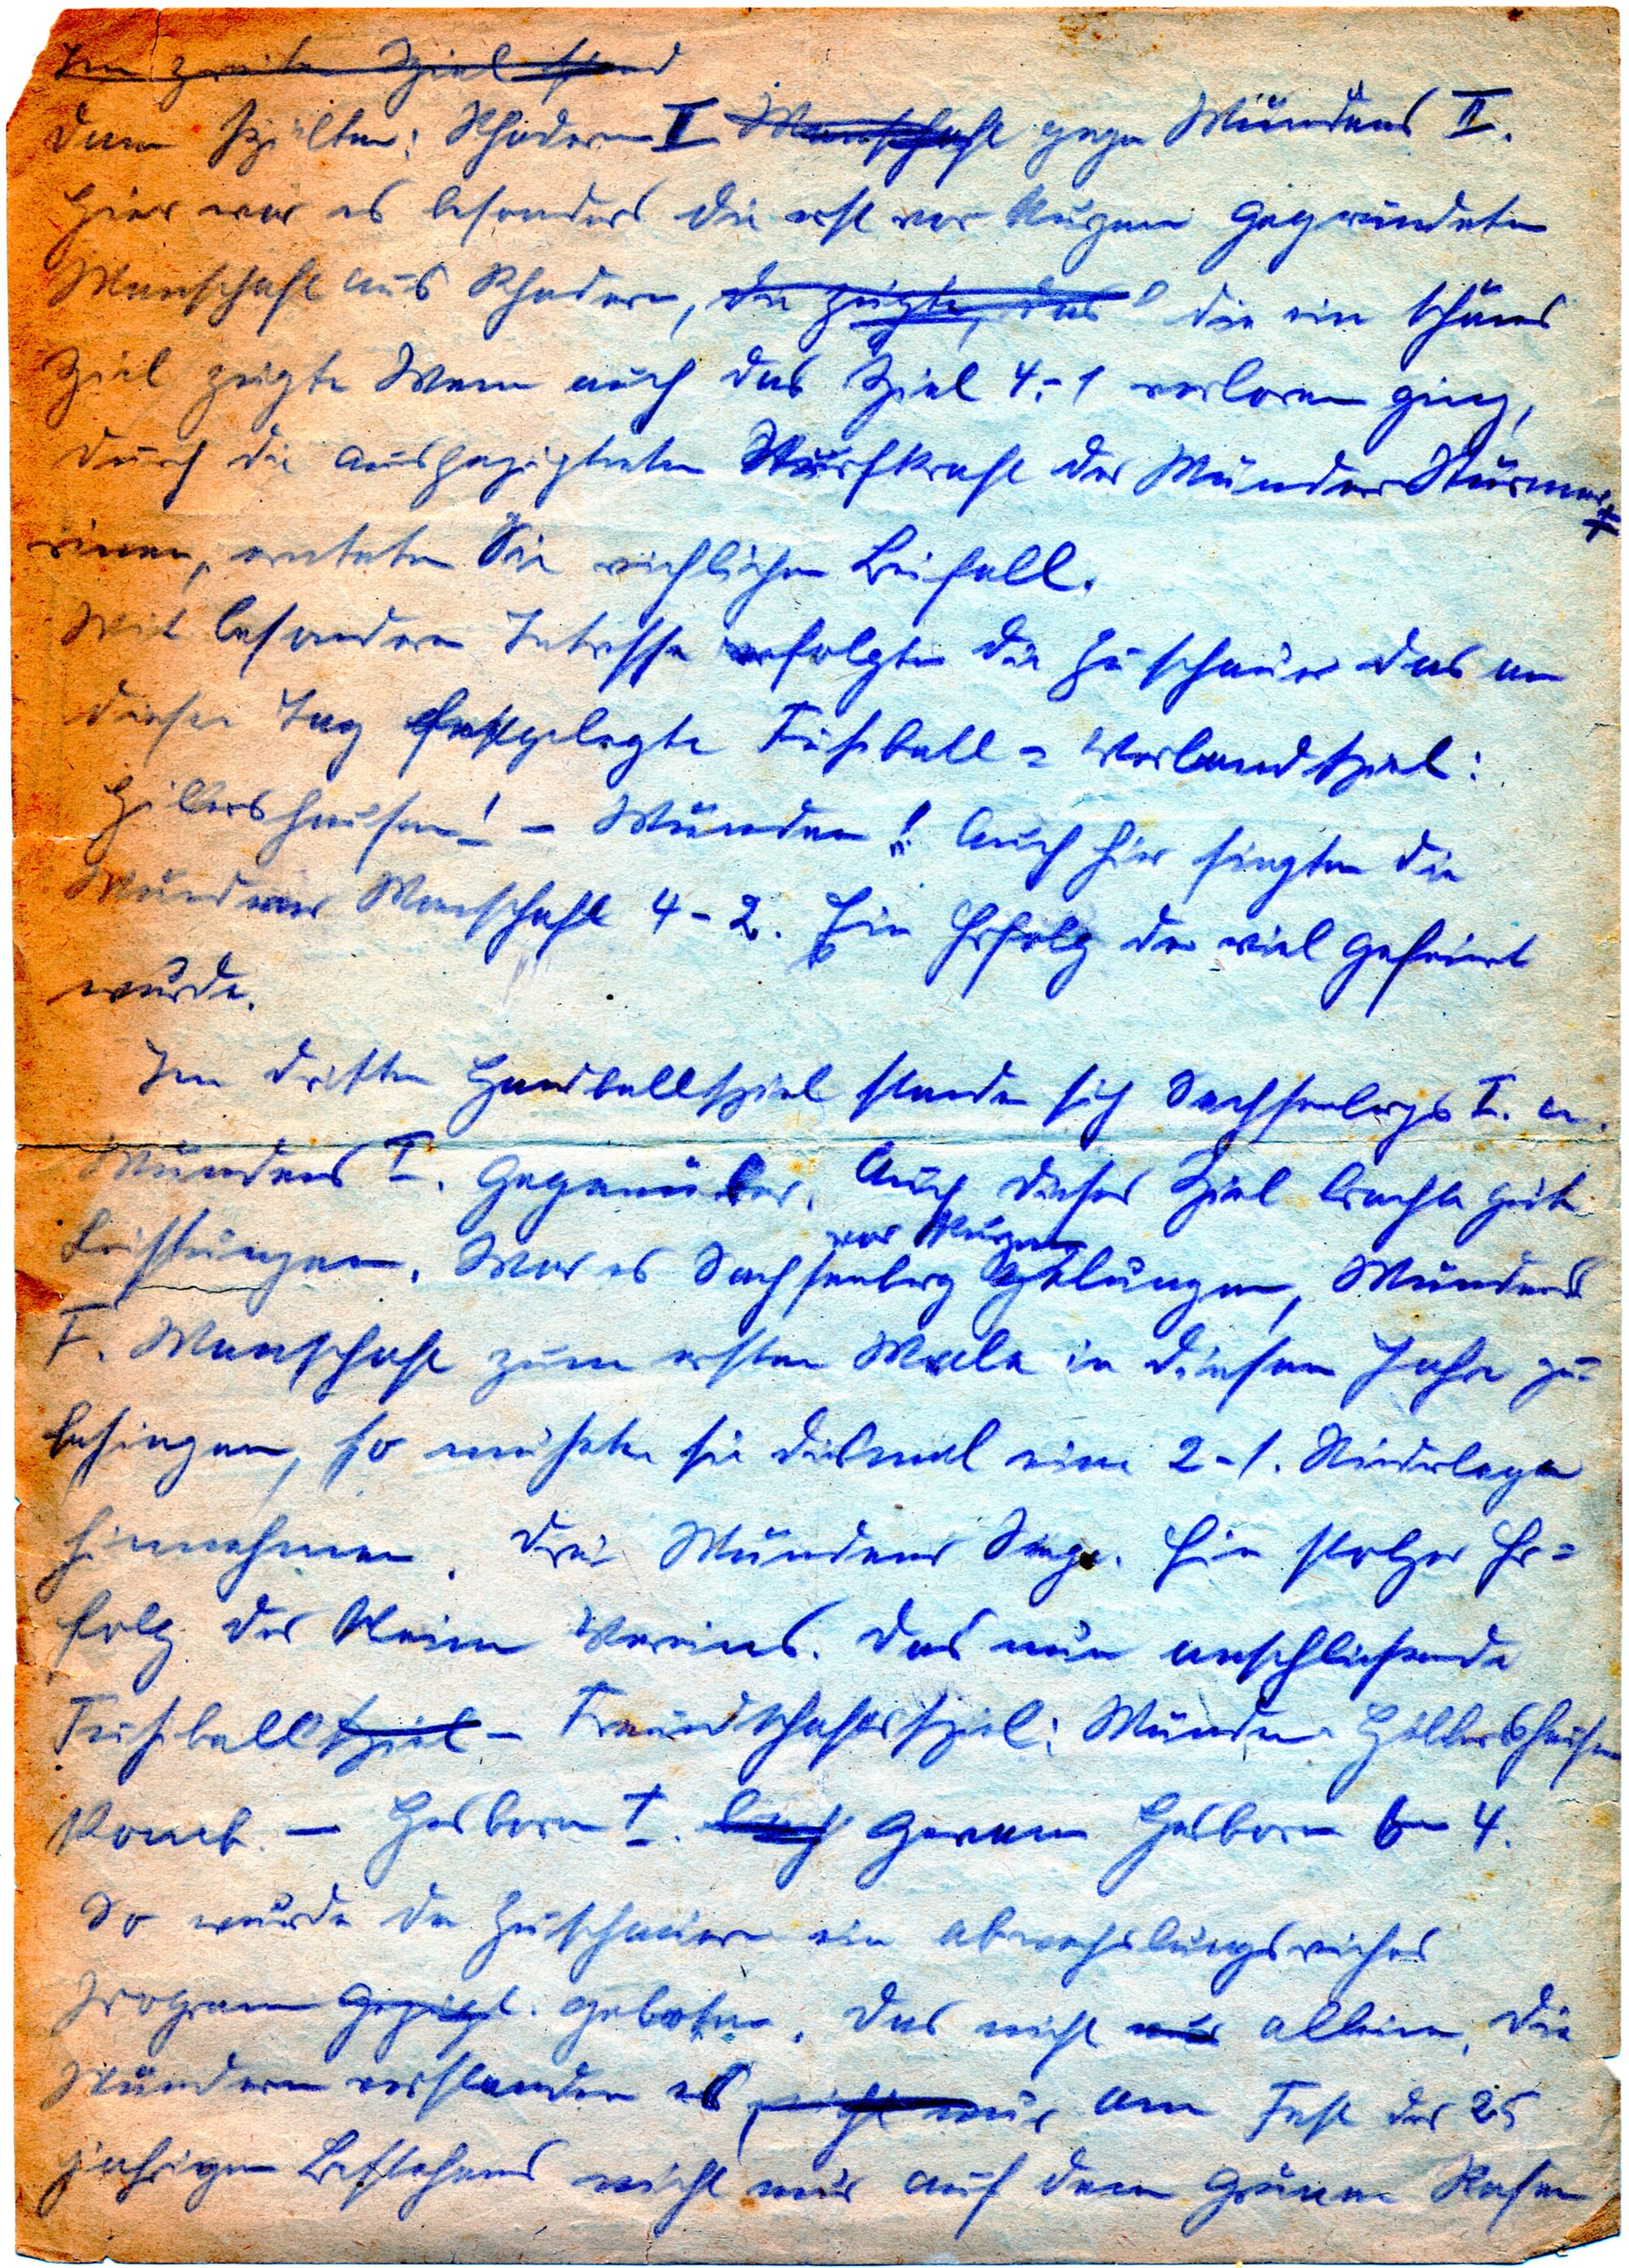 Im zweiten Spiel stand
Dann spielten: Rhadern I Manschaft gegen Mündens II.
Hier war es besonders die erst vor Kurzem Gegründete
Manschaft aus Rhadern, die zeigte, das die ein schönes
Spiel zeigte Wenn auch das Spiel 4:1 verloren ging,
durch die ausgezeigneten Wurfkraft der Münder Stürmer=
rinen, erntete Sie reichlichen Beifall.
Mit besonderen Interesse verfolgten die Zuschauer das an
diesen Tag festgelegte Fußball = Verbandspiel:
Hillershausen! - Münden! Auch hier siegten die
Mündener Manschaft 4-2. Ein Erfolg der viel gefeiert
wurde.
Im dritten Handballspiel standen sich Sachsenbergs I. u.
Mündens I. Gegenüber. Auch dieses Spiel brachte gute
vor Kurzem
Leistungen. War es Sachsenberg gelungen, Mündens
I. Manschaft zum ersten Male in diesem Jahr zu=
besiegen, so mußte sie diesmal eine 2-1. Niederlage
hinnehmen. Drei Mündener Siege. Ein stolzer Er=
folg des Kleinen Vereins. Das nun anschließende
Fußballspiel - Freundschaftsspiel: Münden Hillershausen
Komb. - Hesborn I. Gewann Hesborn 6-4.
So wurde den Zuschauern ein abwechslungsreiches
Program gezeigt. geboten. Das nicht nur allein, die
Mündener verstanden es, nicht nur am Fest des 25
jährigen Bestehens nicht nur auf dem Grünen Rasen